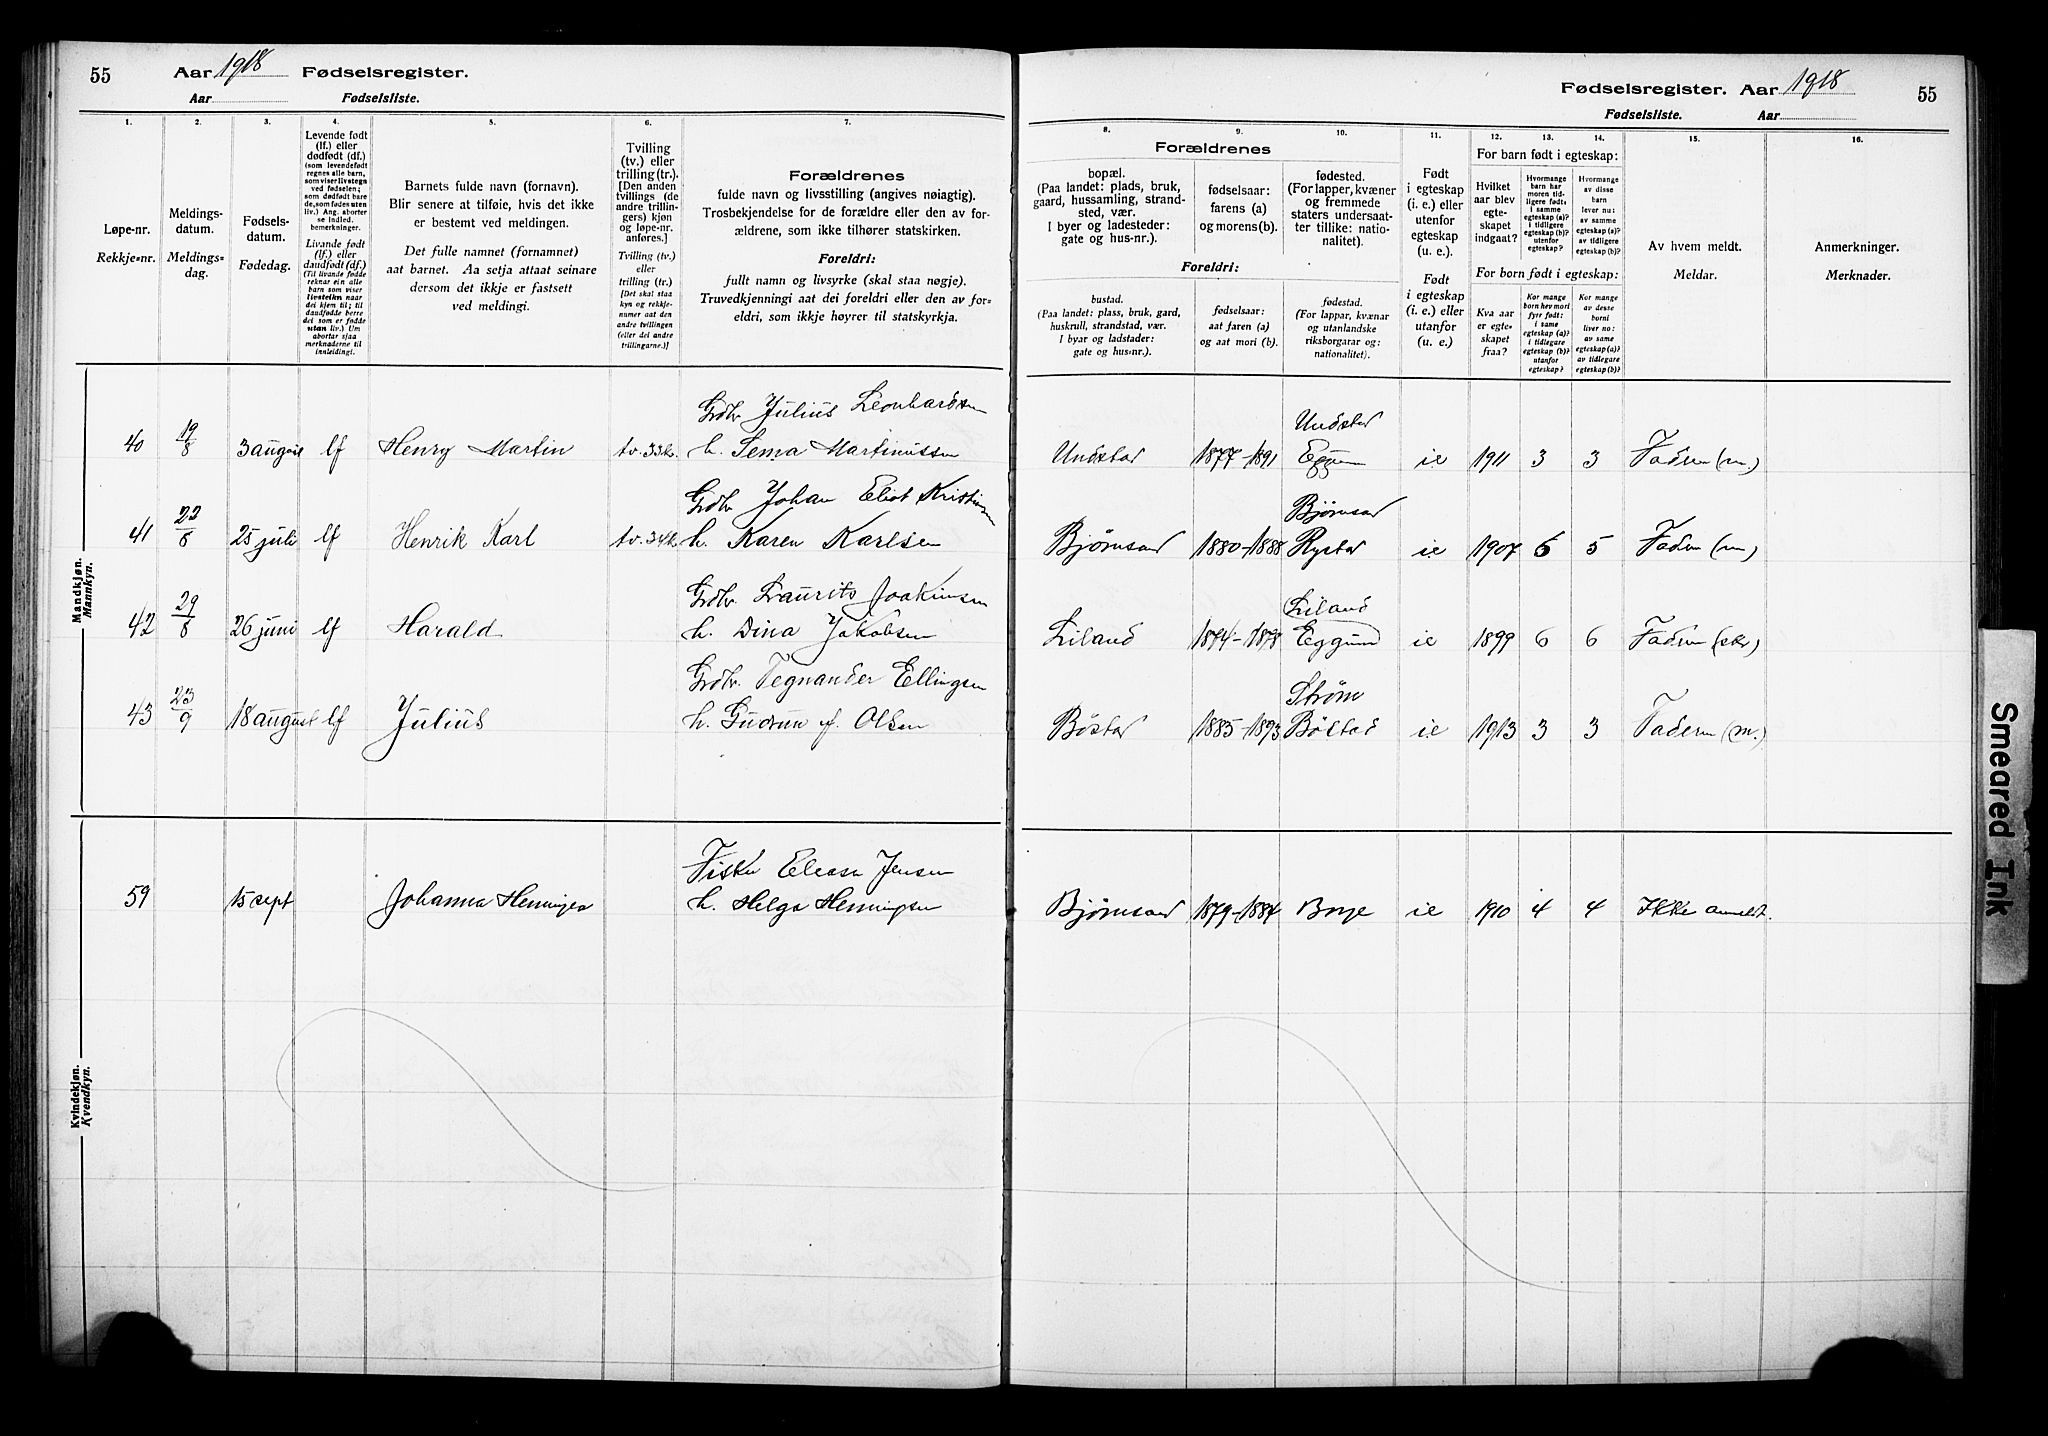 55 Aar 1918 Fødselsregister.
Aar Fødselsliste.
1. 2. 3. 4. 5. 6. 7.
Løpe-nr.
Rekkje-nr.
Meldings-
datum.
Meldings-
dag.
Fødsels-
datum.
Fødedag.
Levende født
(lf.) eller
dødfødt (df.)
(som levendefødt
regnes alle barn,
som viser livstegn
ved fødselen;
som dødfødt bare
de, som fødes uten
liv.) Ang. aborter
se indled.
bemerkninger.
Livande født
(lf.) eller
daudfødt (df.)
(Til livande fødde
reknar ein alle
born som viser
livsteikn naar
dei kjem til; til
daudfødde berre
dei som er fødde
utan liv.) Um
abortar sjaa
merknaderne til
innleidingi.
Barnets fulde navn (fornavn).
Blir senere at tilføie, hvis det ikke
er bestemt ved meldingen.
Det fulle namnet (fornamnet)
aat barnet. Aa setja attaat seinare
dersom det ikkje er fastsett
ved meldingi.
Tvilling
(tv.) eller
trilling (tr.).
[Den anden
tvillings (de
andre trillin-
gers) kjøn
og løpe-nr.
anføres.]
Tvilling (tv.)
eller
trilling (tr.)
[Det skal staa
kyn og rekkje-
numer aat den
andre tvillingen
(eller dei andre
trillingarne.)]
Forældrenes
fulde navn og livsstilling (angives nøiagtig).
Trosbekjendelse for de forældre eller den av for-
ældrene, som ikke tilhører statskirken.
Foreldri:
fullt namn og livsyrke (skal staa nøgje).
Truvedkjenningi aat dei foreldri eller den av for-
eldri, som ikkje høyrer til statskyrkja.
Mandkjøn.
Mannkyn.
Gbr. Julius Leonhardsen
40 19/8 3 august lf Henry Martin tv. 33k. h. Sema Martinussen
Gbr. Johan Eliot Kristiansen
41 22/8 25 juli lf Henrik Karl tv. 34k h. Karen Karlsen
Gbr. Laurits Joakimsen
42 29/8 26 juni lf Harald h. Dina Jakobsen
Gbr. Tegnander Ellingsen
43 23/9 18 august lf Julius h. Gudrun f. Olsen
Kvindekjøn.
Kvendkyn.
Fisker Eleasar Jensen
59 15 sept Johanna Henninges h. Helga Henningsen
Fødselsregister. Aar 1918 55
Fødselsliste. Aar
8. 9. 10. 11. 12. 13. 14. 15. 16.
Forældrenes
bopæl.
(Paa landet: plads, bruk,
gaard, hussamling, strand-
sted, vær.
I byer og ladesteder:
gate og hus-nr.).
fødselsaar:
farens (a)
og morens (b).
fødested.
(For lapper, kvæner
og fremmede
staters undersaat-
ter tillike: natio-
nalitet).
Foreldri:
bustad.
(Paa landet: plass, bruk, gard,
huskrull, strandstad, vær.
I byar og ladstader:
gate og hus-nr.).
fødselsaar:
aat faren (a)
og aat mori (b).
fødestad.
(For lappar, kvænar
og utanlandske
riksborgarar og:
nationalitet).
Født
i egteskap
(i. e.) eller
utenfor
egteskap
(u. e.).
Født
i egteskap
(i. e.) eller
utanfor
(u. e.)
For barn født i egteskap:
Hvilket
aar blev
egte-
skapet
indgaat?
Hvormange
barn har
moren tid-
ligere født,
i samme
egteskap (a)?
i tidligere
egteskap (b)?
utenfor
egteskap?
Hvormange
av disse
barn
lever nu:
av samme
egteskap (a)?
av tidligere
egteskap (b)?
For born født i egteskap:
Kva aar
er egte-
skapet
fraa?
Kor mange
born hev mori
fyrr født:
i same
egteskap (a)?
i tidlegare
egteskap (b)?
utanfor
egteskap?
Kor mange
av desse
borni
liver no:
av same
egteskap (a)?
av tidlegare
egteskap (b)?
Av hvem meldt.
Meldar.
Anmerkninger.
Merknader.
Undstad
Undstad 1877-1891 Eggum ie 1911 3 3 Faderen (m.)
Bjørnsand
Bjørnsand 1880-1888 Rystad ie 1907 6 5 Faderen (m)
Liland
Liland 1874-1878 Eggum ie 1899 6 6 Faderen (skr)
Strøm
Bøstad 1885-1893 Bøstad ie 1913 3 3 Faderen (m.)
Bjørnsand 1879-1884 Borge ie 1910 4 4 Ikke anmeldt.
Smeared Ink